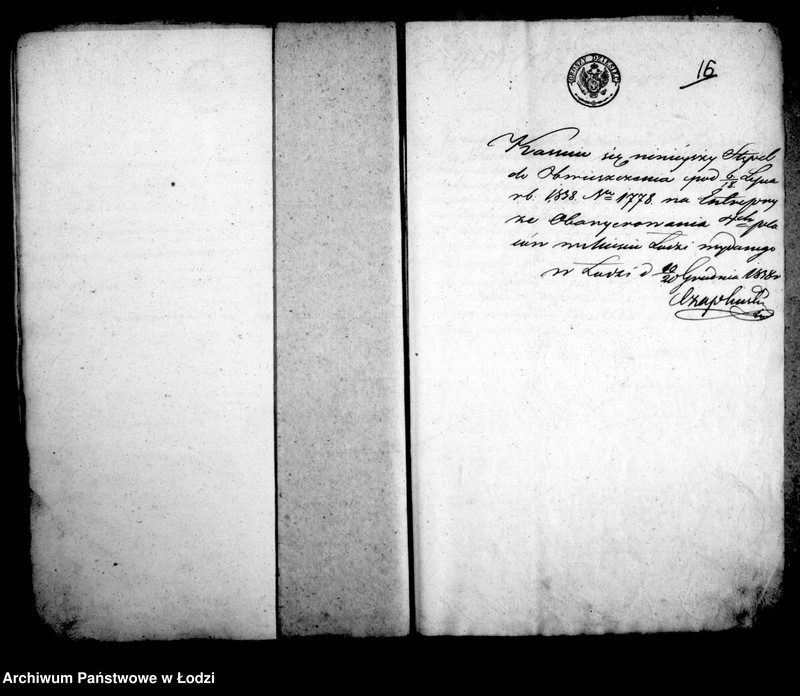 GROSZY DZIESIĘĆ
16
Kassuie się nineyszy Stępel
do Obwieszczenia pod 6/18 Lipca
rb. 1838. Nro 1778. na Entrepry
ze Obaryerowania 4ch pla
ców w Mieście Łodzi wydanego
w Łodzi d 10/20 Grudnia 1838 r
Czaplicki
Archiwum Państwowe w Łodzi